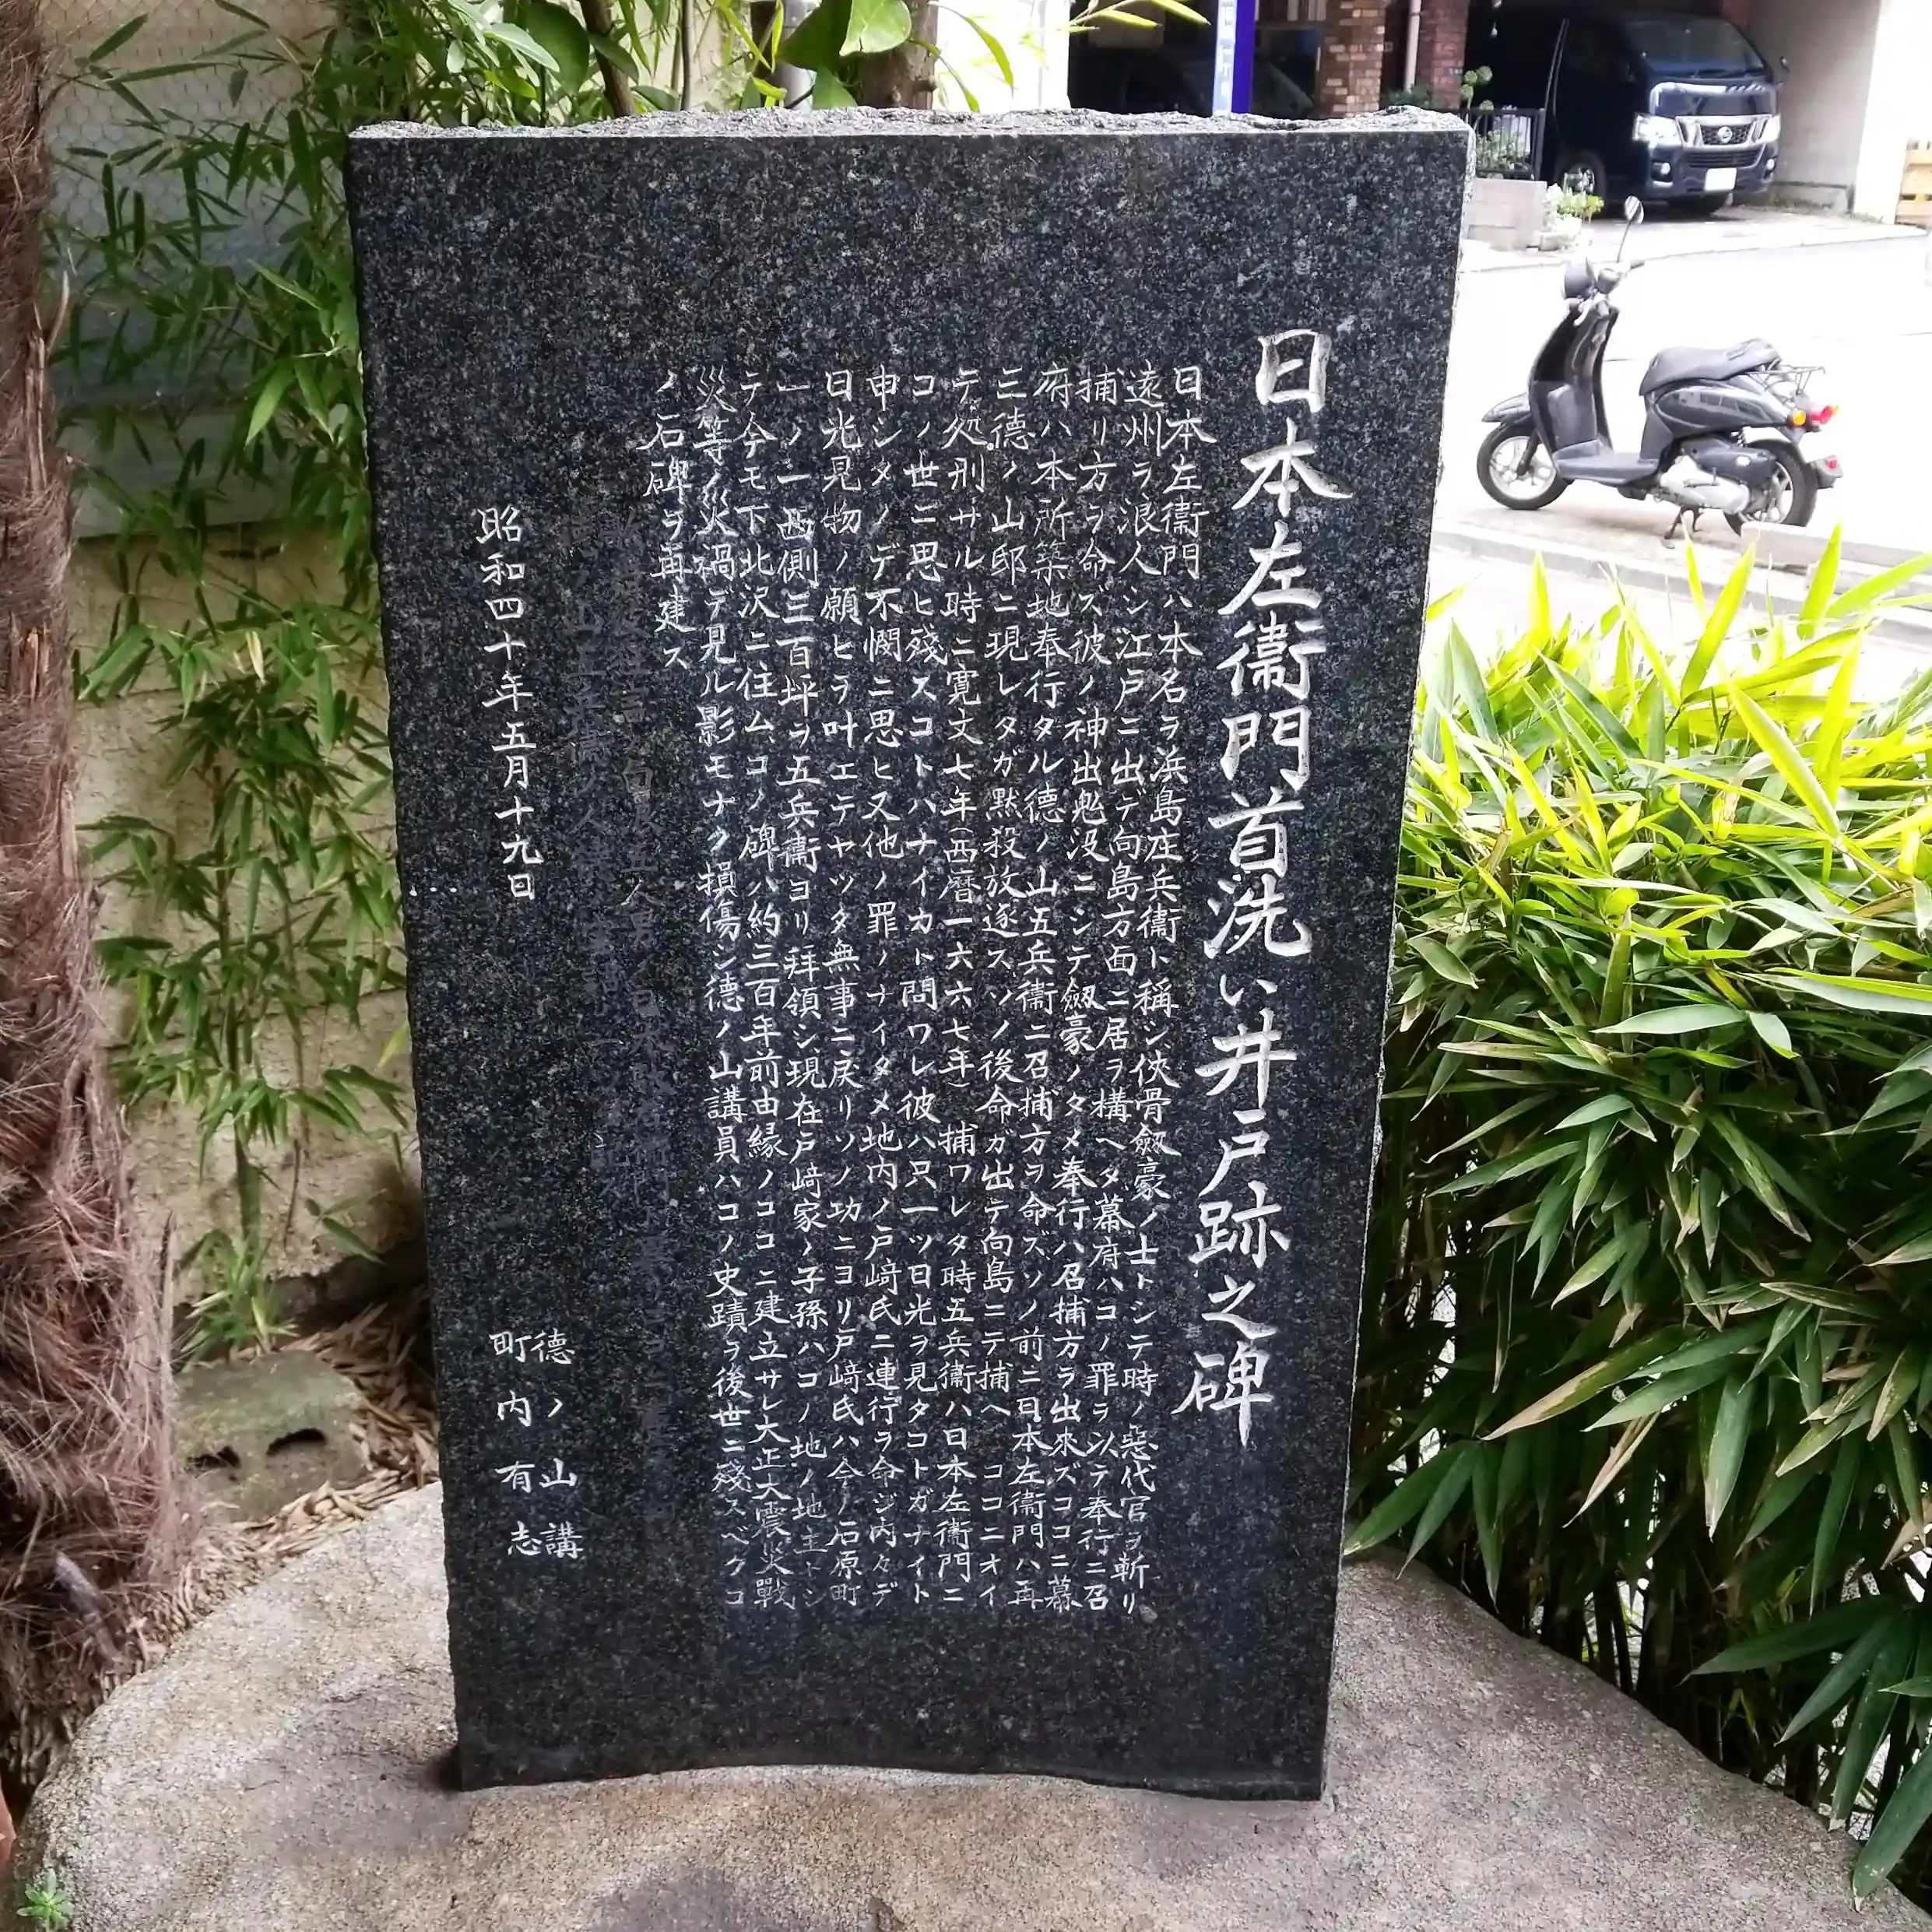 日本左衞門首洗い井戸跡之碑
日本左衞門ハ本名ヲ浜島庄兵衞ト稱シ侠骨劔豪ノ士トシテ時ノ惡代官ヲ斬リ
遠州ヲ浪人シ江戸ニ出デ向島方面ニ居ヲ構ヘタ幕府ハコノ罪ヲ以テ奉行ニ召
捕リ方ヲ命ズ彼ノ神出鬼没ニシテ劔豪ノタメ奉行ハ召捕方ヲ出来ズココニ幕
府ハ本所築地奉行タル德ノ山五兵衞ニ召捕方ヲ命ズソノ前ニ日本左衞門ハ再
三德ノ山邸ニ現レタガ黙殺放逐スソノ後命ガ出テ向島ニテ捕ヘココニオイ
テ処刑サル時ニ寛文七年(西暦一六六七年)捕ワレタ時五兵衞ハ日本左衞門ニ
コノ世ニ思ヒ残スコトハナイカト問ワレ彼ハ只一ツ日光ヲ見タコトガナイト
申シタノデ不憫ニ思ヒ又他ノ罪ノナイタメ地内ノ戸﨑氏ニ連行ヲ命ジ内々デ
日光見物ノ願ヒヲ叶エテヤッタ無事ニ戻リソノ功ニヨリ戸﨑氏ハ今ノ石原町
一ノ一西側三百坪ヲ五兵衞ヨリ拜領シ現在戸﨑家ノ子孫ハコノ地ノ地主トシ
テ今モ下北沢ニ住ムコノ碑ハ約三百年前由縁ノココニ建立サレ大正大震災戰
災等ノ災禍デ見ル影モナク損傷シ德ノ山講員ハコノ史蹟ヲ後世ニ殘スベクコ
ノ石碑ヲ再建ス
昭和四十年五月十九日
德ノ山講
町内有志